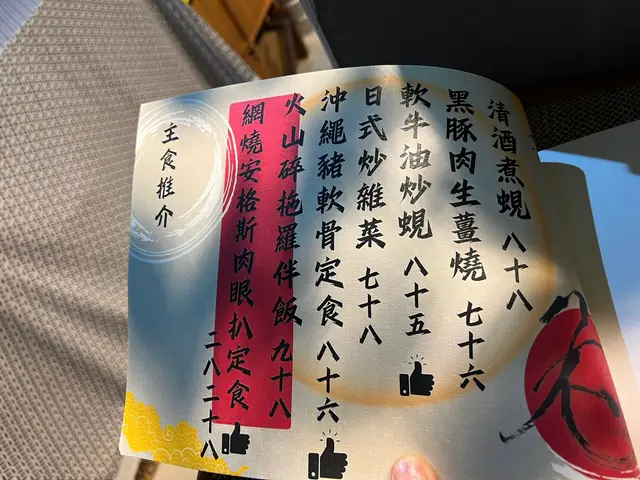 清酒煮蜆 八十八
黑豚肉生薑燒 七十六
軟牛油炒蜆 八十五
日式炒雜菜 七十八
沖繩豬軟骨定食 八十六
火山碎拖羅伴飯 九十八
網燒安格斯肉眼扒定食
二八二十八
主食推介